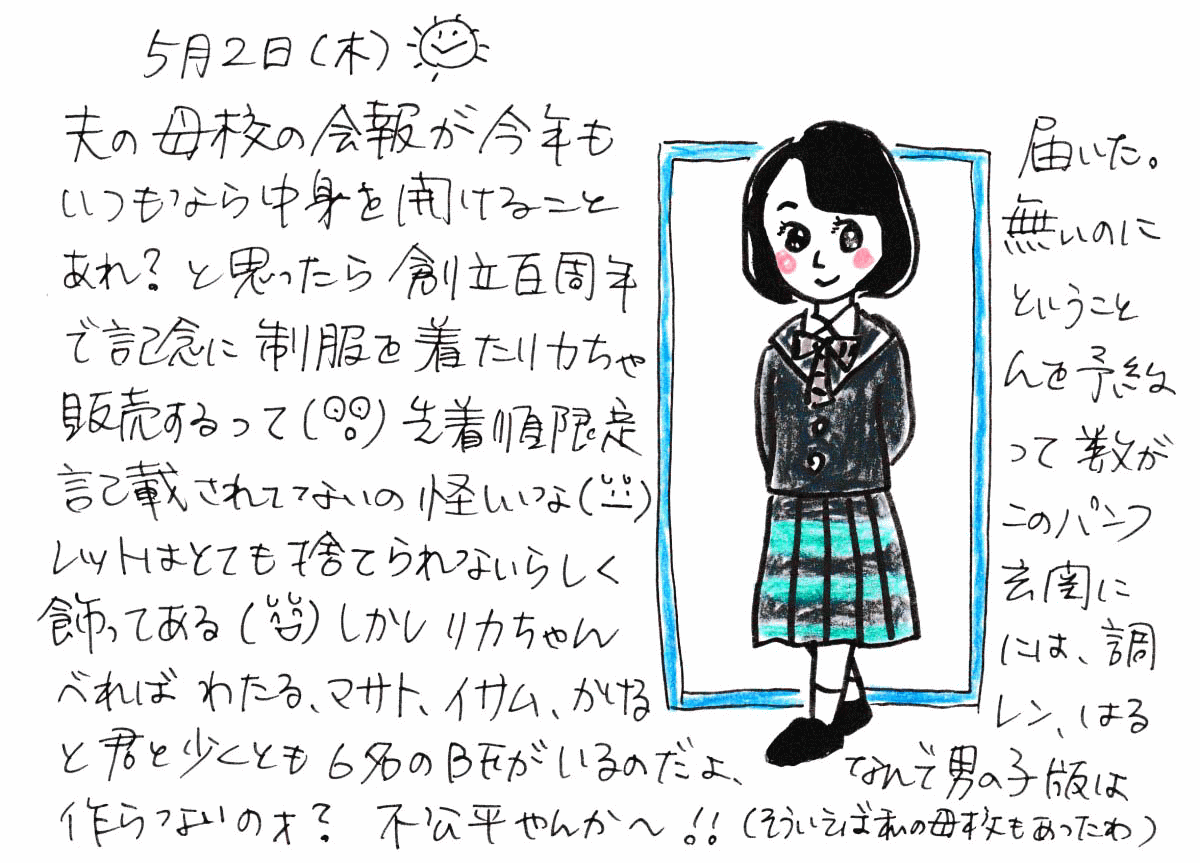 5月2日(木)
夫の母校の会報が今年も 届いた。
いつもなら中身を開けること 無いのに
あれ？と思ったら創立百周年 ということ
で記念に制服を着たリカちゃ んを予約
販売するって 先着順限定 って数が
記載されててないの怪しいな このパンフ
レットはとても捨てられないらしく 玄関に
飾ってある しかしリカちゃん には、調
べれば わたる、マサト、イサム、かける レン、はる
と君と少くとも6名のBFがいるのだよ、 なんで男の子版は
作らないのオ？ 不公平やんか〜!! (そういえば私の母校もあったわ)